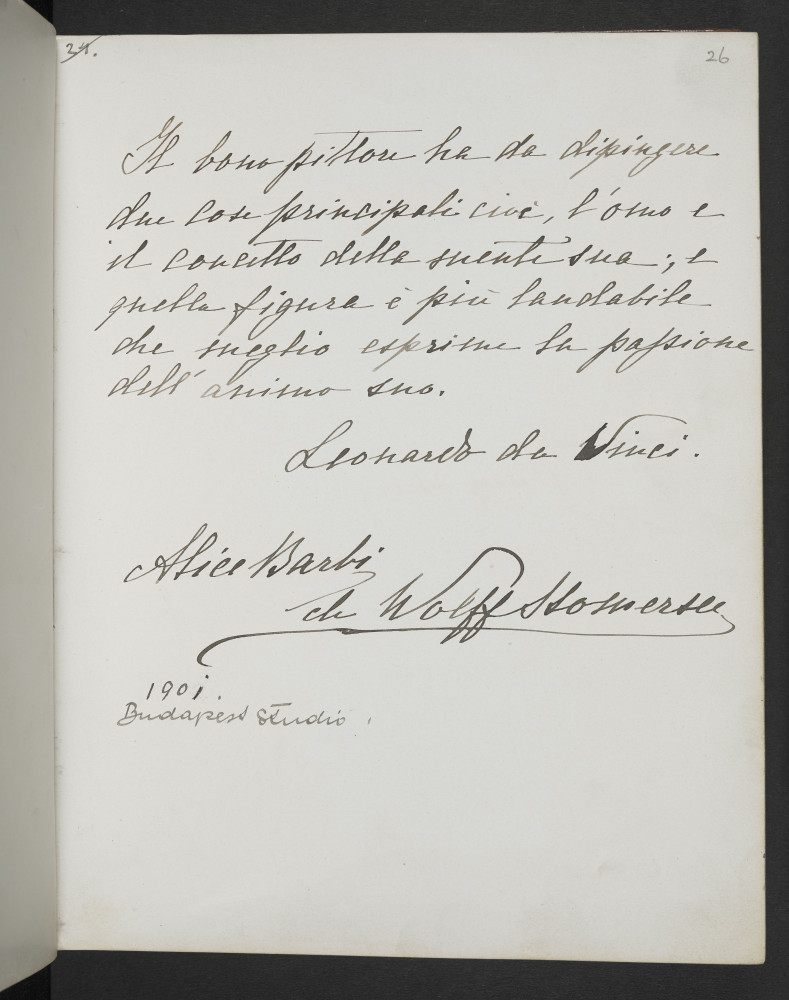 24.
26
Il bono pittore ha da dipingere
due cose principali cioè, l'omo e
il concetto della mente sua; e
quella figura è più laudabile
che meglio esprime la passione
dell' animo suo.
Leonardo da Vinci.
Alice Barbi
de Wolff Stomersee
1901.
Budapest Studio.